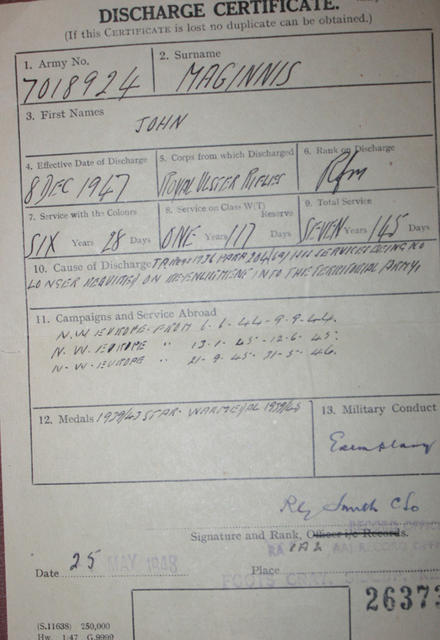 DISCHARGE CERTIFICATE.
(If this CERTIFICATE is lost no duplicate can be obtained.)
1. Army No.
7018924
2. Surname
MAGINNIS
3. First Names
JOHN
4. Effective Date of Discharge
8 DEC 1947
5. Corps from which Discharged
ROYAL ULSTER RIFLES
6. Rank on Discharge
Rfm
7. Service with the Colours
SIX Years 28 Days
8. Service on Class W(T) Reserve
ONE Years 117 Days
9. Total Service
SEVEN Years 145 Days
10. Cause of Discharge PARA 204 SERVICES BEING NO
LONGER REQUIRED ON RE-ENLISTMENT INTO THE TERRITORIAL ARMY.
11. Campaigns and Service Abroad
N.W. EUROPE - FROM 6-6-44 - 9-9-44.
N.W. EUROPE " 13-1-45 - 12-6-45.
N-W-EUROPE " 21-9-45 31-5-46.
12. Medals 1939/45 STAR - WAR MEDAL 1939/45
13. Military Conduct
Exemplary
Smith
Signature and Rank, Officer i/c Records.
RECORD
Date 25 MAY 1948
Place
FOOTS CRAY,
2637
(S.11638) 250,000
Hw. 1.47 G.9999